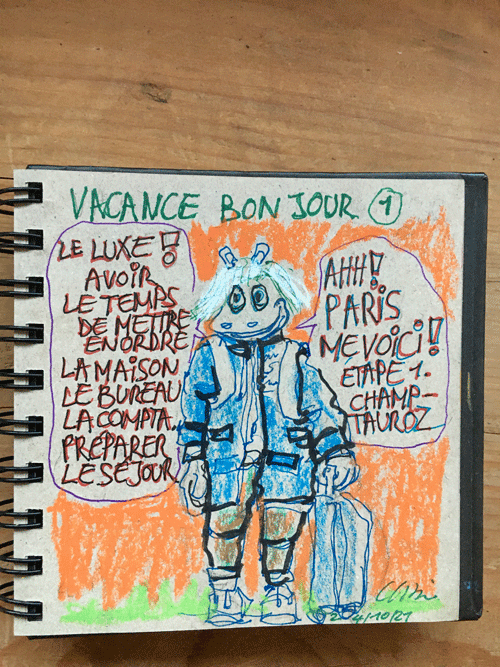 VACANCE BONJOUR 1
LE LUXE !
AVOIR
LE TEMPS
DE METTRE
EN ORDRE
LA MAISON
LE BUREAU
LA COMPTA.
PREPARER
LE SEJOUR
AHH !
PARIS
ME VOICI !
ETAPE 1.
CHAMP-
TAUROZ
4/10/21